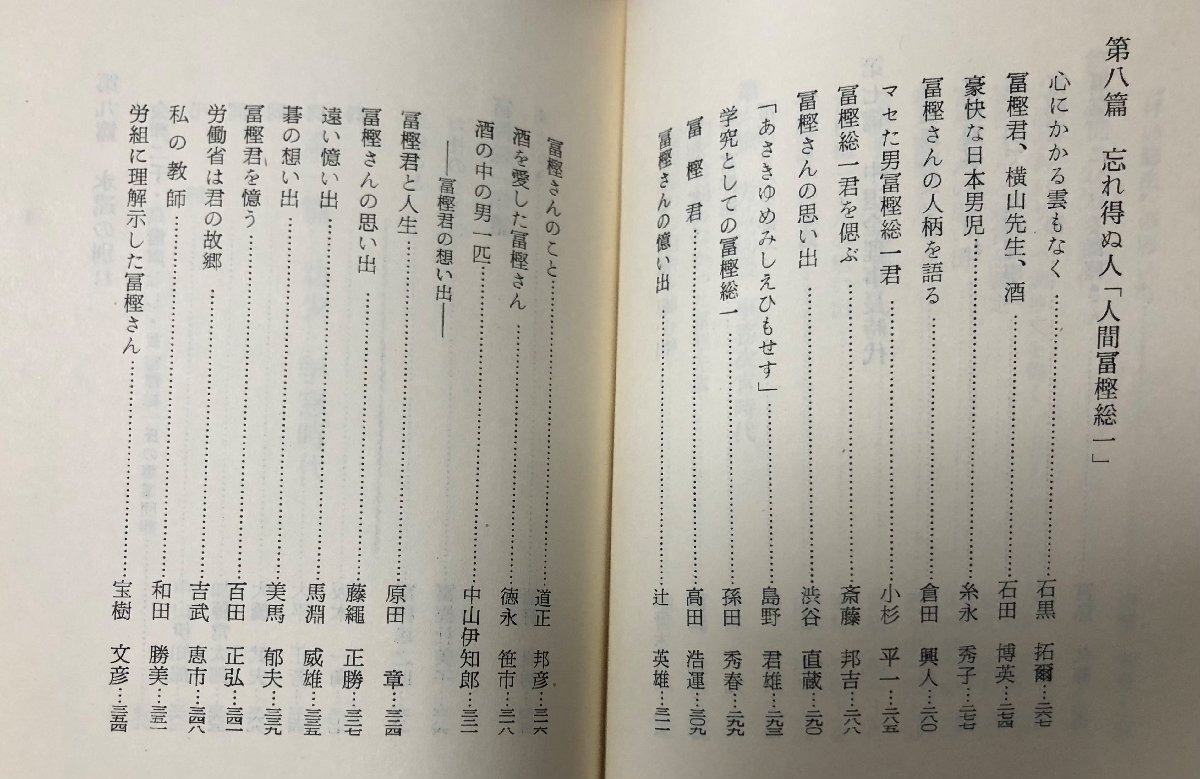 第八篇 忘れ得ぬ人「人間冨樫総一」
心にかかる雲もなく…………石黒 拓爾…二六七
冨樫君、横山先生、酒…………石田 博英…二七四
豪快な日本男児…………糸永 秀子…二七七
冨樫さんの人柄を語る…………倉田 興人…二八〇
マセた男冨樫総一君…………小杉 平一…二八五
冨樫総一君を偲ぶ…………斎藤 邦吉…二八八
冨樫さんの思い出…………渋谷 直蔵…二九〇
「あさきゆめみしえひもせす」…………島野 君雄…二九三
学究としての冨樫総一…………孫田 秀春…二九九
冨樫君…………高田 浩運…三〇九
冨樫さんの憶い出…………辻 英雄…三一一
冨樫さんのこと…………道正 邦彦…三一六
酒を愛した冨樫さん…………徳永 笹市…三一八
酒の中の男一匹…………中山伊知郎…三二一
――冨樫君の想い出――
冨樫君と人生…………原田 章…三二四
冨樫さんの思い出…………藤繩 正勝…三二七
遠い憶い出…………馬淵 威雄…三三五
碁の想い出…………美馬 郁夫…三三九
冨樫君を憶う…………百田 正弘…三四一
労働省は君の故郷…………吉武 恵市…三四八
私の教師…………和田 勝美…三五一
労組に理解示した冨樫さん…………宝樹 文彦…三五四